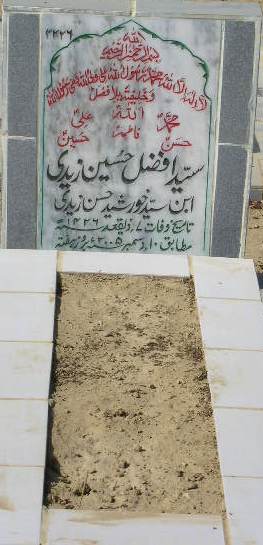 ۳۴۲۶
بسم الله الرحمن الرحیم
لا اله الا الله محمد رسول الله علی ولی الله وصی رسول الله
وخلیفته بلا فصل
محمدؐ الله علیؑ
حسنؑ فاطمهؑ حسینؑ
سید افضل حسین زیدی
ابن سید خورشید حسن زیدی
تاریخ وفات ۷ ذیقعد ۱۴۲۶ھ
مطابق ۱۰ دسمبر ۲۰۰۵ء بروز ہفتہ